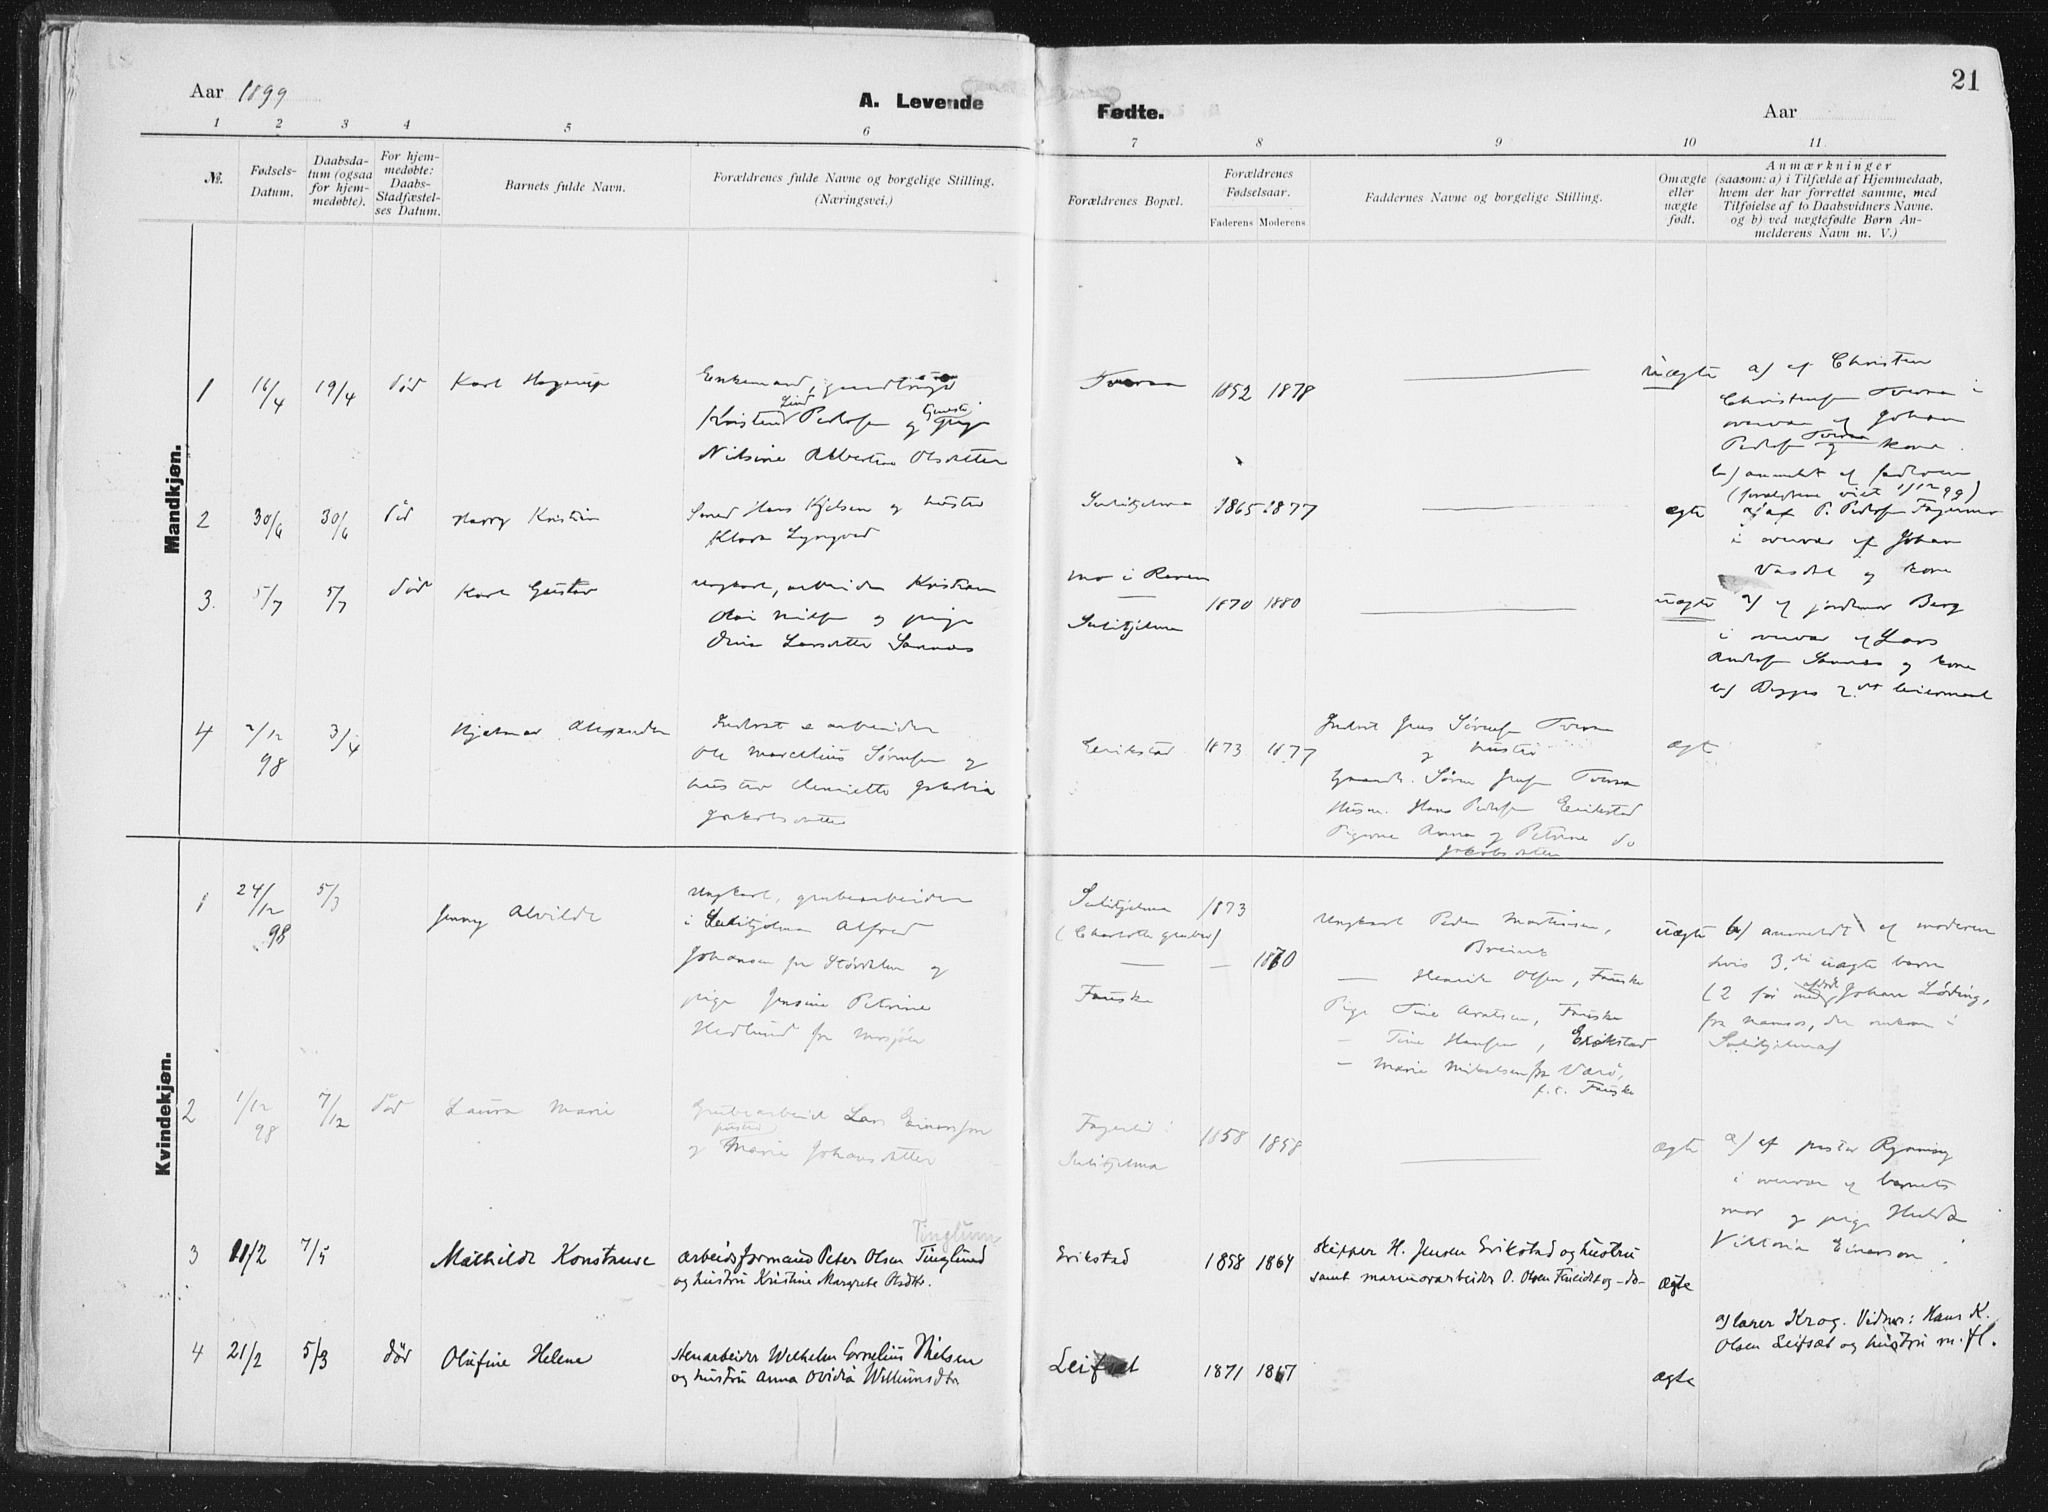 21
Aar 1899
A. Levende
Fødte.
Aar
1 2 3 4 5 6 7 8 9 10 11
№.
Fødsels-
Datum.
Daabsda-
tum (ogsaa
for hjem-
medøbte).
For hjem-
medøbte:
Daabs-
Stadfæstel-
ses Datum.
Barnets fulde Navn.
Forældrenes fulde Navne og borgelige Stilling.
(Næringsvei.)
Forældrenes Bopæl.
Forældrenes
Fødselsaar.
Faderens Moderens
Faddernes Navne og borgelige Stilling.
Omægte
eller
uægte
født.
Anmærkninger
(saasom: a) i Tilfælde af Hjemmedaab,
hvem der har forrettet samme, med
Tilføielse af to Daabsvidners Navne.
og b) ved uægtefødte Børn An-
melderens Navn m. V.)
Mandkjøn.
1 16/4 19/4 død Karl Hagerup
Enkemand,
Lind
Pedersen og pige
Nilsine Albertine Olsdatter
Tveraa
1852 1878
uægte
a) af Christen
Christensen Tveraa i
overvær af Johan
Pedersen Tveraa og kone.
b) anmeldt af faderen
2 30/6 30/6 død Harry Kristian
Smed Hans Kjelsen og hustru
Klara Lyngved
Sulitjelma
1865 1877
ægte
a) af P. Pedersen Fagermo
i overvær af Johan
og kone
3. 5/7 5/7 død Karl Gustav
Ungkarl, arbeider Kristian
Olai Nilsen og pige
Larsdatter Sannæs
Mo i Ranen
Sulitjelma
1870 1880
uægte
a) af jordmor Berg
i overvær af Lars
Andersen Sannæs og kone
b)
4 2/12 98 3/4 Hjalmar Alexander
Inderst & arbeider
Ole Marcelius Sørensen og
hustru Henriette Jakobia
Jakobsdatter
Erikstad
1873 1877
Inderst Jens Sørensen Tveraa
og hustru
Gaardb. Søren Jensen Tveraa
Husm. Hans Pedersen Erikstad
Pigerne Anna og Petrine do
Jakobsdatter
ægte
Kvindekjøn.
1 24/12 98 5/3 Jenny Alvilde
Ungkarl, grubearbeider
i Sulitjelma Alfred
Johansen fra Størdalen og
pige Jensine Petrine
Hedlund fra Mosjøen
Sulitjelma
(Charlotte gruber)
Fauske
1873
1870
Ungkarl Peder Mortinsen,
Breivik
— Henrik Olsen, Fauske
Pige Tine Arntsen, Fauske
— Tine Hansen, Erikstad
— Marie Mikalsen fra Værø,
f.t. Fauske
uægte
b) anmeldt af moderen
hvis 3.die uægte barn
(2 før med afdøde Johan Løding,
fra Namsos, der omkom i
Sulitjelma)
2 1/12 98 7/12 død Laura Marie
Grubearbeid Lars Einersen
hustru
og Marie Johansdatter
Fagerlid i
Sulitjelma
1858 1858
ægte
a) af pastor Rynning
i overvær af barnets
mor og pige Hulda
Viktoria Einersen.
3 11/2 7/5 Mathilde Konstanse
Tinglum
arbeidsformand Peter Olsen Tinglund
og hustru Kristine Margrete Olsdtr.
Erikstad
1858 1864
skipper H. Jensen Erikstad og hustru
samt marmorarbeider O. Olsen Fineidet og -do-
ægte
4 21/2 5/3 død Olufine Helene
stenarbeider Wilhelm Cornelius Nielsen
og hustru Anna Ovidia Willumsdtr
Leifset
1871 1867
ægte
a) larer Krog. Vidner: Hans K.
Olsen Leifset og hustru m. fl.